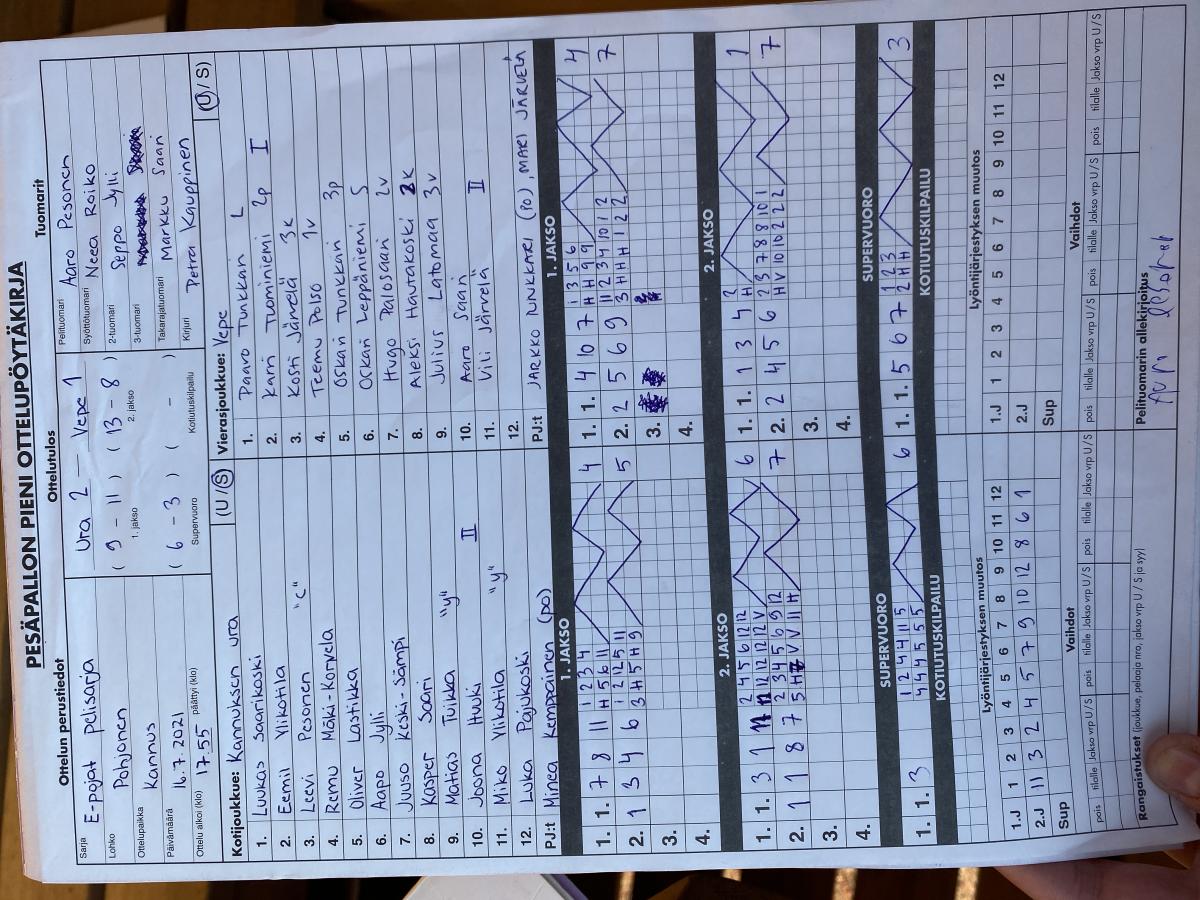 PESÄPALLON PIENI OTTELUPÖYTÄKIRJA
Ottelun perustiedot
Sarja E-pojat pelisarja
Lohko Pohjonen
Ottelupaikka Kannus
Päivämäärä 16.7.2021
Ottelu alkoi (klo) 17.55 päättyi (klo)
Ottelutulos
Ura 2 - Vepe 1
( 9 - 11 ) ( 13 - 8 )
1. jakso 2. jakso
( 6 - 3 ) ( - )
Supervuoro Kotiutuskilpailu
Tuomarit
Pelituomari Aaro Pesonen
Syöttötuomari Neea Roiko
2-tuomari Seppo Jylli
3-tuomari
Takarajatuomari Markku Saari
Kirjuri Petra Kauppinen
Kotijoukkue: Kannuksen Ura (U / S)
1. Luukas Saarikoski
2. Eemil Ylikotila
3. Leevi Pesonen "C"
4. Remu Mäki-Korvela
5. Oliver Lastikka
6. Aapo Jylli
7. Juuso Keski-Sämpi
8. Kasper Saari
9. Matias Tuikka "y"
10. Joona Huuki II
11. Miko Ylikotila "y"
12. Luka Pajukoski
PJ:t Minea Kemppainen (PO)
Vierasjoukkue: Vepe (U / S)
1. Paavo Tunkkari L
2. Karri Tuominiemi 2p I
3. Kosti Järvelä 3k
4. Teemu Polso 1v
5. Oskari Tunkkari 3p
6. Oskari Leppäniemi S
7. Hugo Palosaari 2v
8. Aleksi Hautakoski 2k
9. Julius Latomaa 3v
10. Aaro Saari
11. Vili Järvelä II
12.
PJ:t JARKKO TUNKKARI (PO), MARI JÄRVELÄ
1. JAKSO
1. 1. 7 8 11
1 2 3 4
H 5 6 11
4
2. 1 3 4 6
1 2 12 5 11
3 H 5 H 9
5
3.
4.
1. JAKSO
1. 1. 4 10 7
1 3 5 6
H H 9 9
4
2. 2 5 6 9
11 2 3 4 10 1 2
3 H H H 1 2 2
7
3.
4.
2. JAKSO
1. 1. 3 1
2 4 5 6 12 12
6
2. 1 8 7
2 3 4 5 6 9 12
7
3.
4.
2. JAKSO
1. 1. 1 3 4
2
H
1
2. 2 4 5 6
2 3 7 8 8 10 1
H V 10 10 2 2 2
7
3.
4.
SUPERVUORO
1. 1. 3
1 2 4 4 11 5
4 4 5 5 5
6
KOTIUTUSKILPAILU
SUPERVUORO
1. 1. 5 6 7
1 2 3
2 H H
3
KOTIUTUSKILPAILU
Lyöntijärjestyksen muutos
1 2 3 4 5 6 7 8 9 10 11 12
1.J
2.J 11 3 2 4 5 7 9 10 12 8 6 1
Sup
Lyöntijärjestyksen muutos
1 2 3 4 5 6 7 8 9 10 11 12
1.J
2.J
Sup
Vaihdot
pois tilalle Jakso vrp U / S pois tilalle Jakso vrp U / S pois tilalle Jakso vrp U / S
Vaihdot
pois tilalle Jakso vrp U / S pois tilalle Jakso vrp U / S pois tilalle Jakso vrp U / S
Rangaistukset (joukkue, pelaaja nro, jakso vrp U / S ja syy)
Pelituomarin allekirjoitus